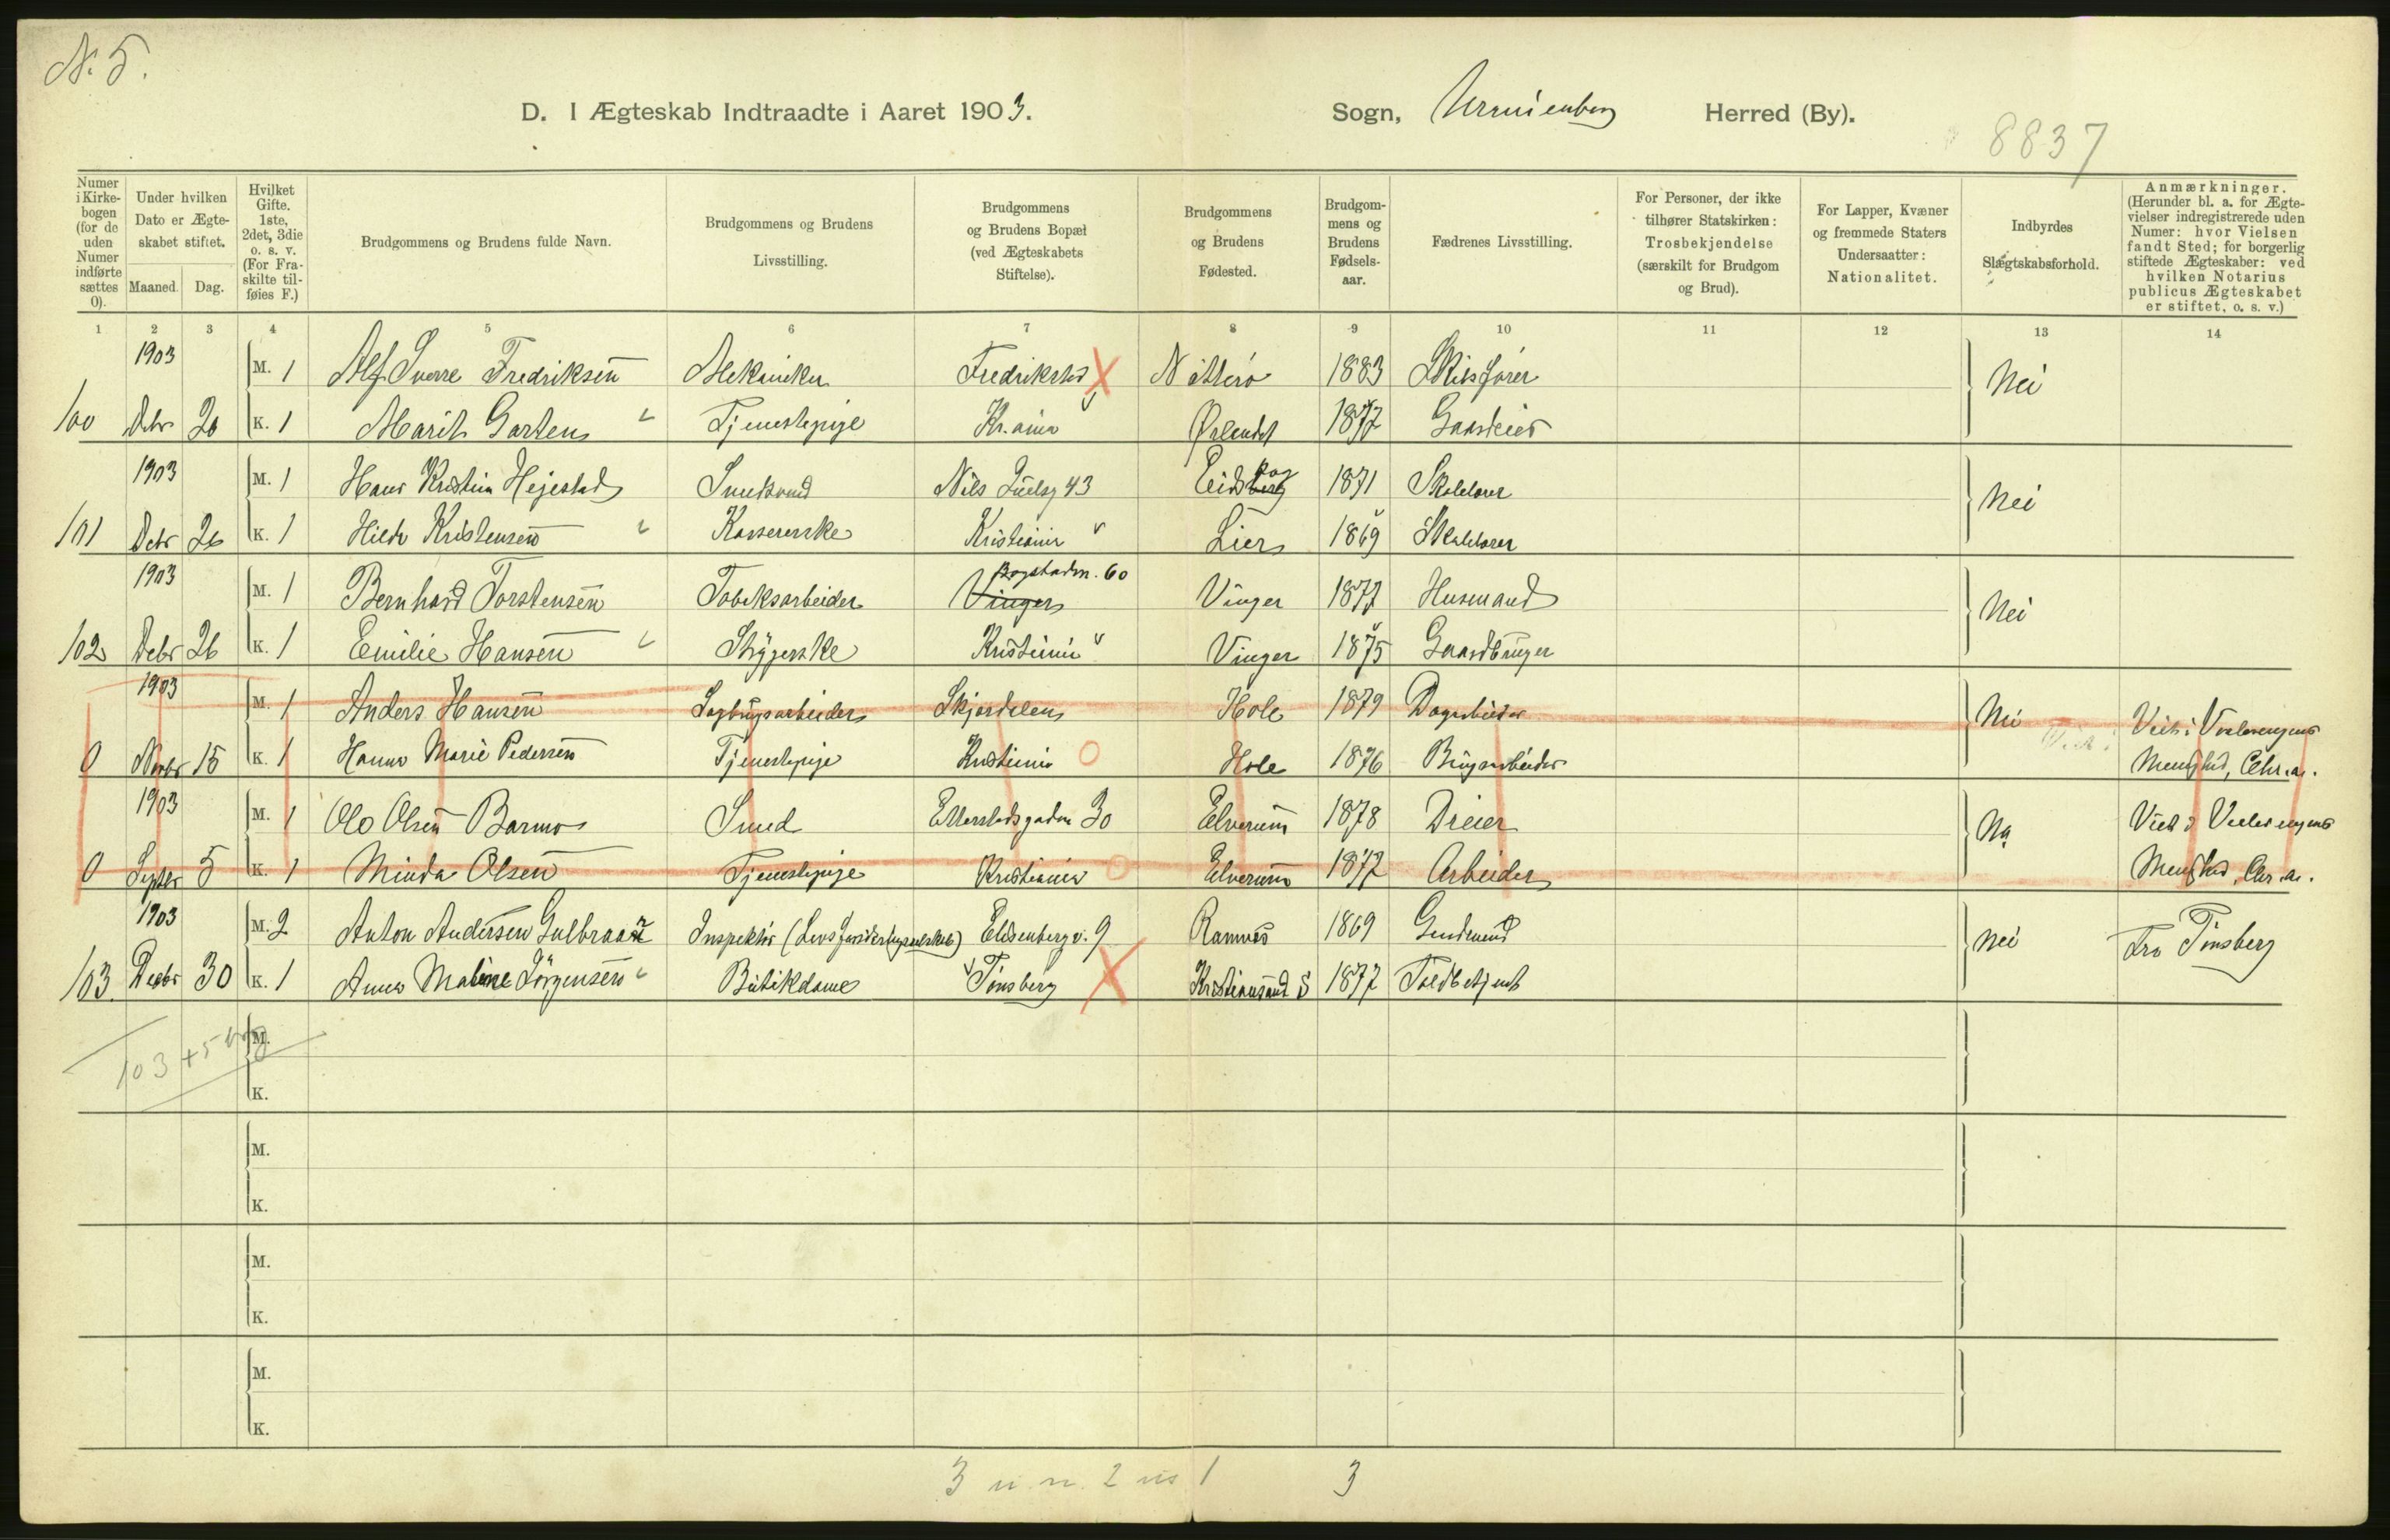 N. 5.
D. I Ægteskab Indtraadte i Aaret 1903. Sogn, Uranienborg Herred (By).
8837
Numer i Kirkebogen (for de uden Numer indførte sættes 0).
Under hvilken Dato er Ægteskabet stiftet.
Maaned. Dag.
Hvilket Gifte. 1ste, 2det, 3die o. s. v. (For Fraskilte tilføies F.)
Brudgommens og Brudens fulde Navn.
Brudgommens og Brudens Livsstilling.
Brudgommens og Brudens Bopæl (ved Ægteskabets Stiftelse).
Brudgommens og Brudens Fødested.
Brudgommens og Brudens Fødselsaar.
Fædrenes Livsstilling.
For Personer, der ikke tilhører Statskirken: Trosbekjendelse (særskilt for Brudgom og Brud).
For Lapper, Kvæner og fremmede Staters Undersaatter: Nationalitet.
Indbyrdes Slægtskabsforhold.
Anmærkninger. (Herunder bl. a. for Ægtevielser indregistrerede uden Numer: hvor Vielsen fandt Sted; for borgerlig stiftede Ægteskaber: ved hvilken Notarius publicus Ægteskabet er stiftet, o. s. v.)
1 2 3 4 5 6 7 8 9 10 11 12 13 14
1903 M. 1 Alf Sverre Fredriksen Mekaniker Fredrikstad X Nøtterø 1883 Skibsfører Nei
100 Debr 20 K. 1 Marit Garten Tjenestepige Kr.ania Ørlandet 1877 Gaardeier
1903 M. 1 Hans Kristian Hejestad Smedsvend Nils Juelsg 43 Eidsberg skog 1871 Skolelærer Nei
101 Debr 26 K. 1 Hilda Kristensen Kassererske Kristiania Lier 1869 Skolelærer
1903 M. 1 Bernhard Torstensen Tobaksarbeider Vinger Bogstadv. 60 Vinger 1877 Husmand Nei
102 Debr 26 K. 1 Emilie Hansen Strygerske Kristiania Vinger 1875 Gaardbruger
1903 M. 1 Anders Hansen Sagbrugsarbeider Skjærdalen Hole 1879 Dagarbeider Nei Viet i Vaalerengens
0 Novbr 15 K. 1 Hanna Marie Pedersen Tjenestepige Kristiania O Hole 1876 Brugsarbeider Menighed, Chr.a.
1903 M. 1 Olo Olsen Barmo Smed Etterstadsgaden 30 Elverum 1878 Dreier Nei Viet i Vaalerengens
0 Septbr 5 K. 1 Minda Olsen Tjenestepige Kristiania O Elverum 1877 Arbeider Menighed, Chr.a.
1903 M. 2 Anton Andersen Gulbraar Inspektør (Livsforsikringsselskab) Eilsenbergv. 9 Ramnes 1869 Gaardmand Nei Fra Tønsberg
103. Decbr 30 K. 1 Anna Maline Jörgensen Butikdame Tønsberg X Kristiansand S 1877 Toldbetjent
103 + 5
M.
K.
M.
K.
M.
K.
M.
K.
3 u. n. 2 us 1 3